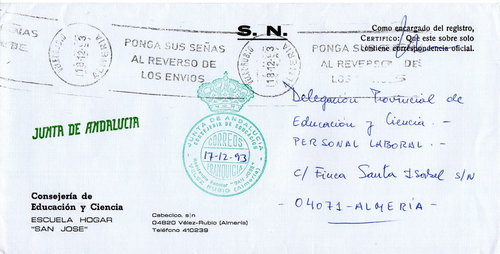 S. N.
Como encargado del registro,
CERTIFICO: Que este sobre solo
contiene correspondencia oficial.
PONGA SUS SEÑAS
AL REVERSO DE
LOS ENVIOS
PONGA SUS SEÑAS
AL REVERSO DE
LOS ENVIOS
18-12-93
ALMERIA
JUNTA DE ANDALUCIA
JUNTA DE ANDALUCIA
CORREOS
17-12-93
FRANQUICIA
VELEZ RUBIO (Almería)
Delegación Provincial de
Educación y Ciencia. -
PERSONAL LABORAL. -
c/ Finca Santa Isabel s/n
- 04071 - ALMERÍA. -
Consejería de
Educación y Ciencia
ESCUELA HOGAR
"SAN JOSE"
Cabecico, s/n
04820 Vélez-Rubio (Almería)
Teléfono 410239